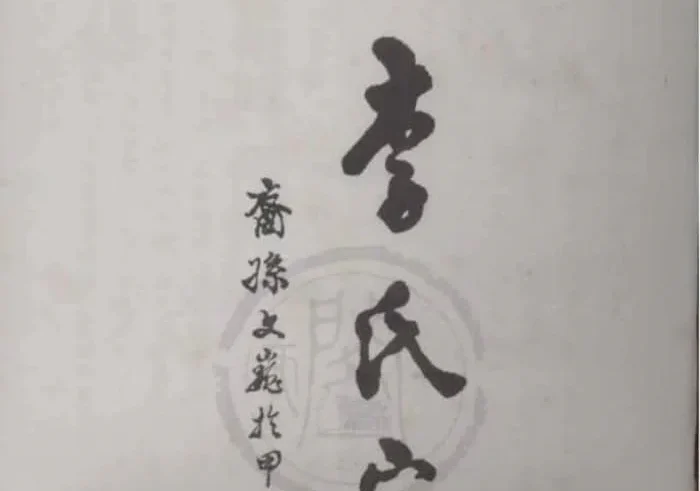 李氏山
裔孫文巍於甲